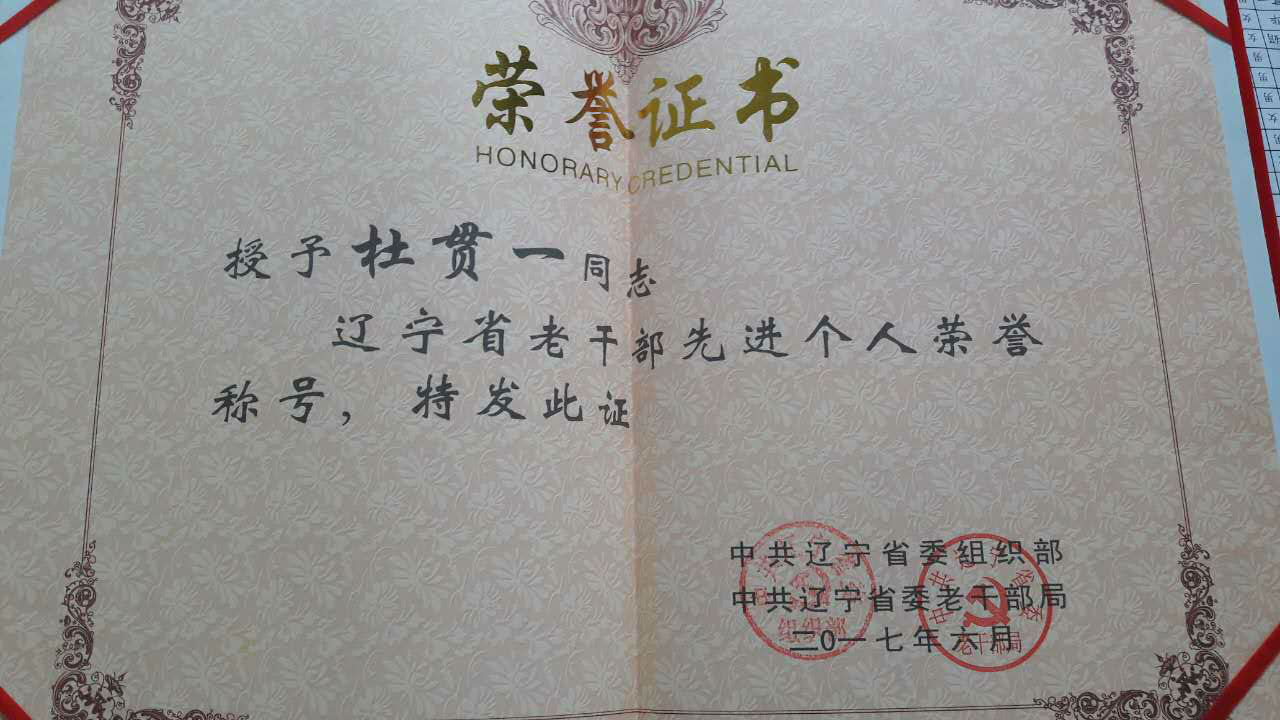 荣誉证书
HONORARY CREDENTIAL
授予杜贯一同志
辽宁省老干部先进个人荣誉
称号，特发此证
中共辽宁省委组织部
中共辽宁省委老干部局
二0一七年六月
组织部
中共辽宁省委
老干部局